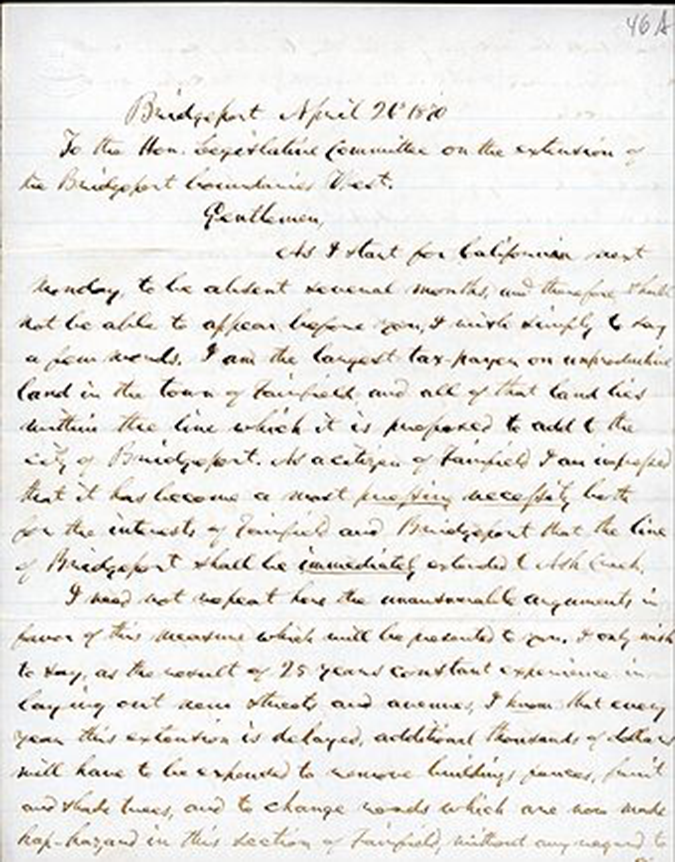 46 A
Bridgeport April 26 1870
To the Hon. Legislative Committee on the extension of
the Bridgeport boundaries West.
Gentlemen,
As I start for California next
Monday, to be absent several months, and therefore shall
not be able to appear before you, I wish simply to say
a few words. I am the largest tax-payer on unproductive
land in the town of Fairfield, and all of that land lies
within the line which it is proposed to add to the
city of Bridgeport. As a citizen of Fairfield I am impressed
that it has become a most pressing necessity both
for the interests of Fairfield and Bridgeport that the line
of Bridgeport shall be immediately extended to Ash Creek.
I need not repeat here the unanswerable arguments in
favor of this measure which will be presented to you. I only wish
to say, as the result of 25 years constant experience in
laying out new streets and avenues, I know that every
year this extension is delayed, additional thousands of dollars
will have to be expended to remove buildings, fences, fruit
and shade trees, and to change roads which are now made
hap-hazard in this section of Fairfield, without any regard to